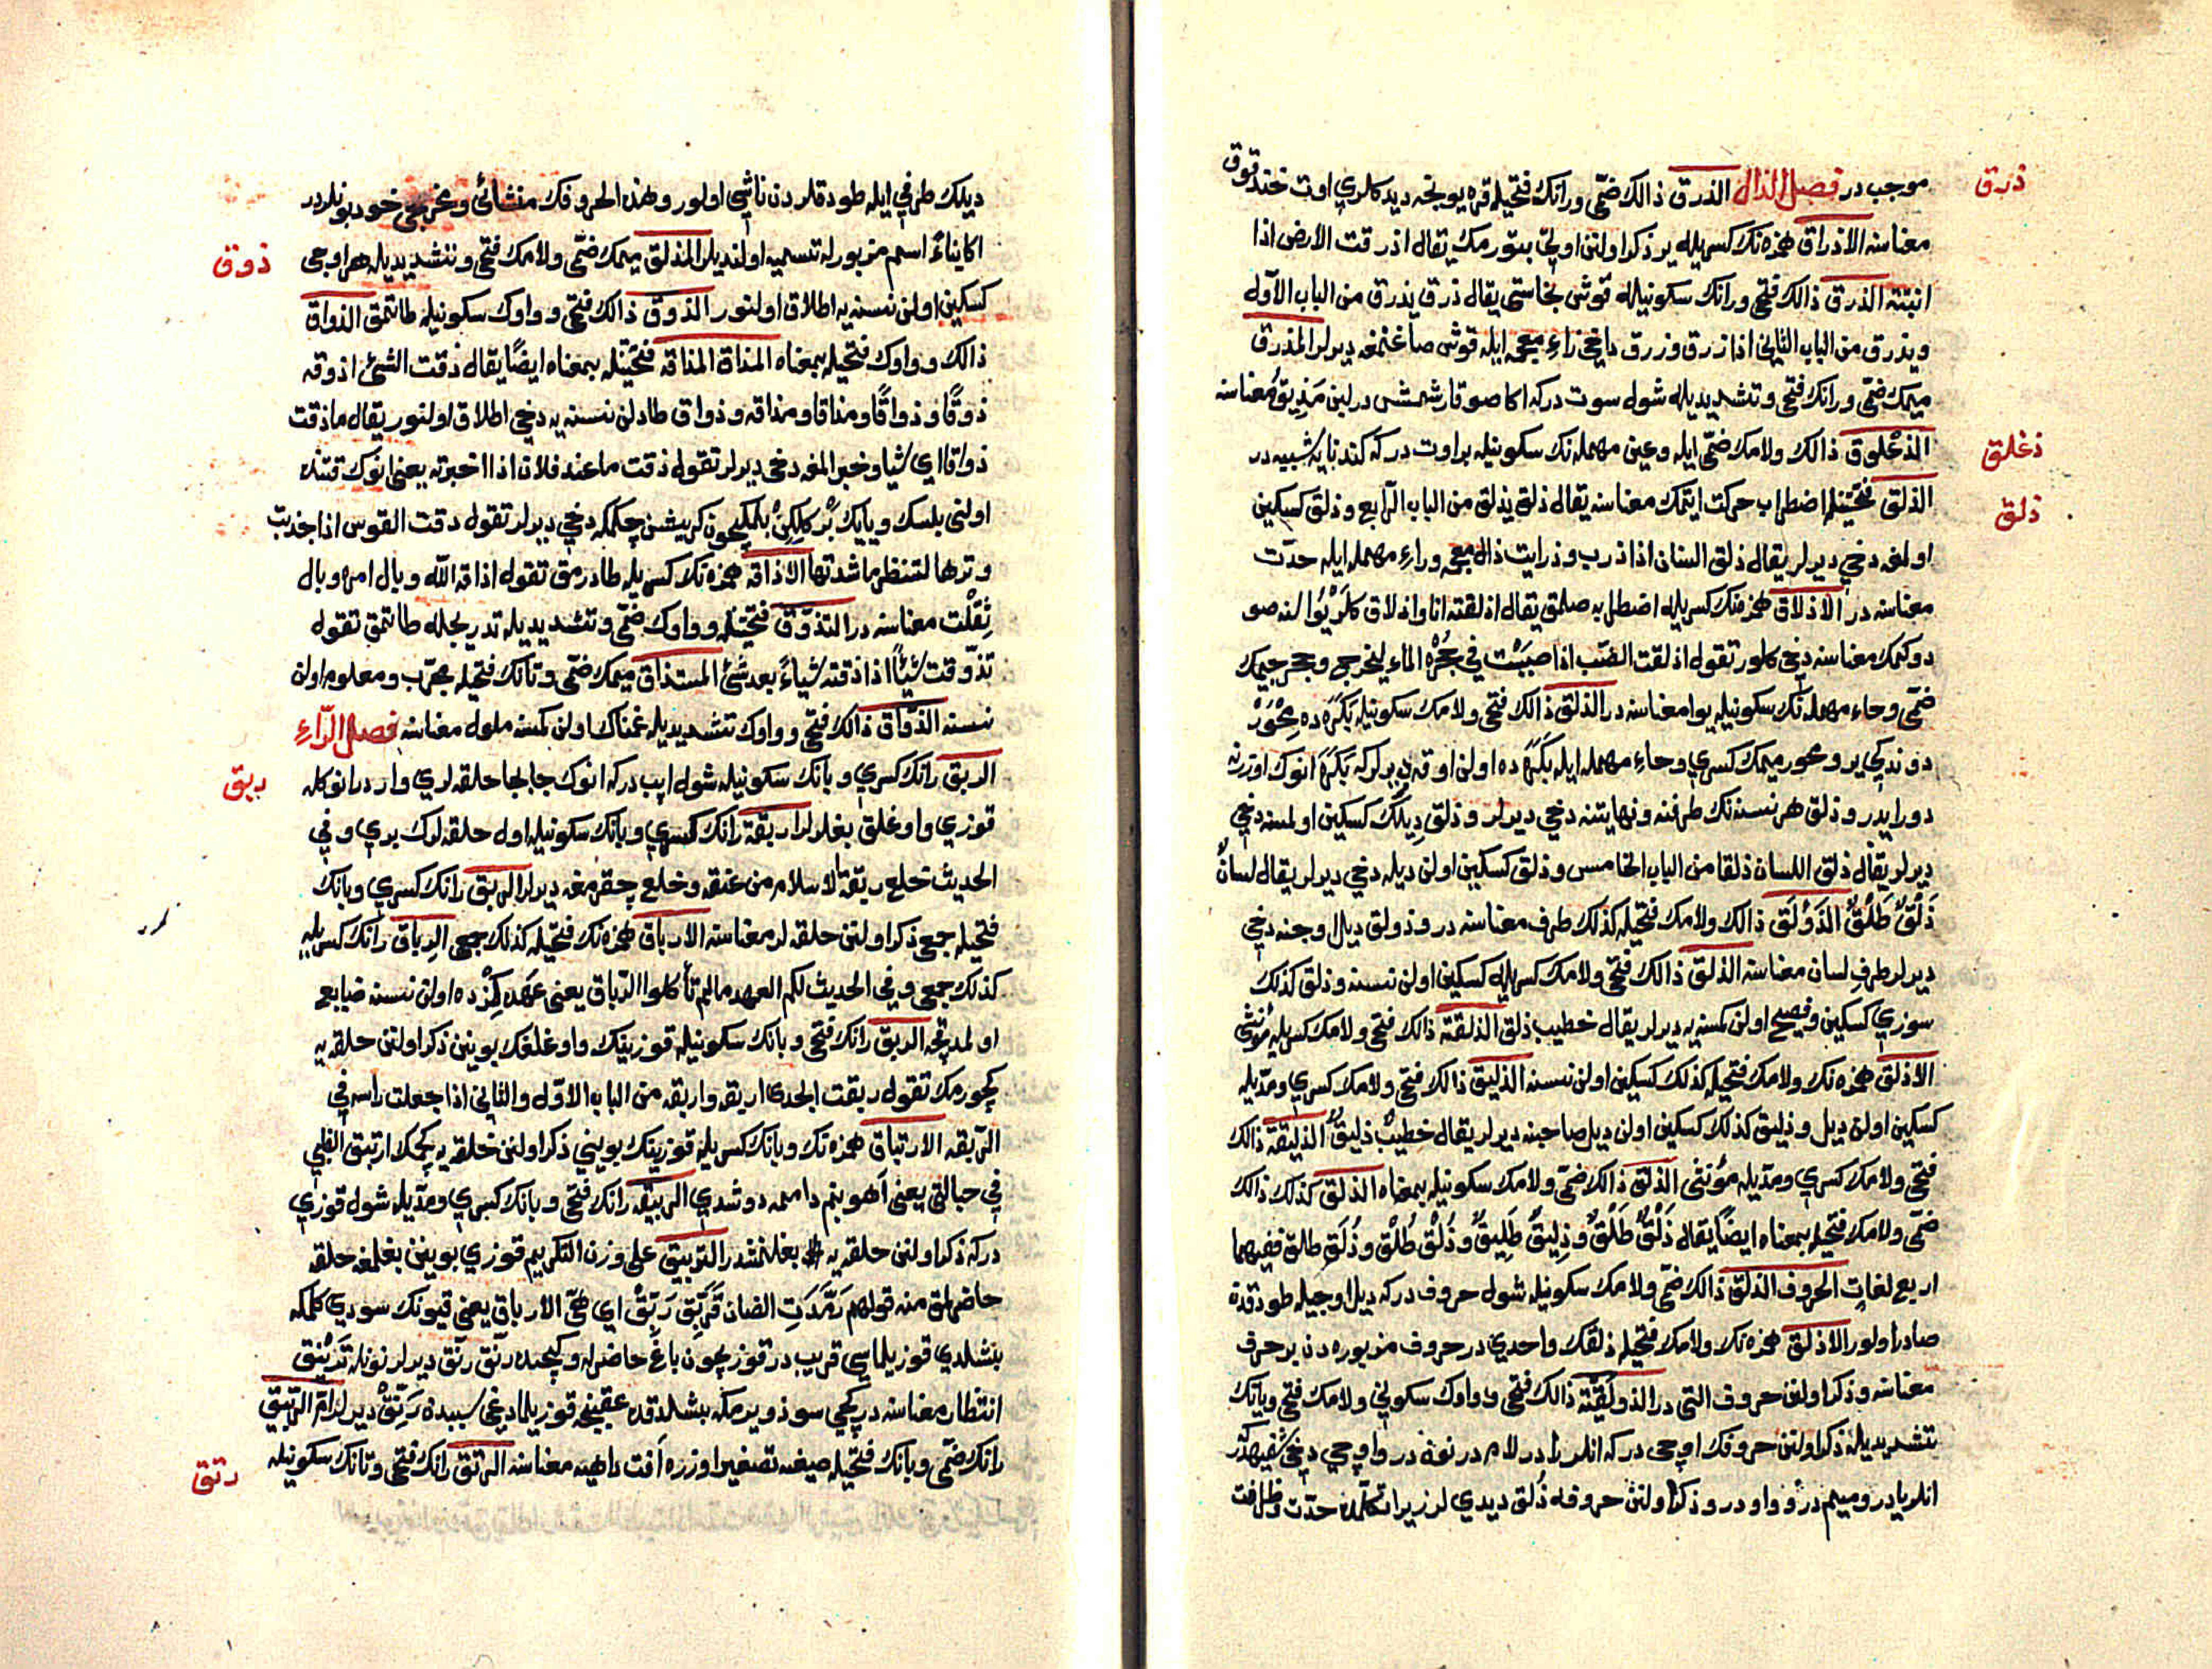 ذرق
موجب در فصل الذال الذرق ذالك ضمّی ورانك فتحیله قره یونجه دیدكلری اوت خندقوق
معناسنه الاذراق همزه نك كسریله یر ذكر اولنن اولی بتورمك یقال اذرقت الارض اذا
انبتته الذرق ذالك فتحی ورانك سكونیله قوش نجاستی یقال ذرق یذرق من الباب الاول
ویذرق من الباب الثانی اذا زرق وزرق داخی زاء معجمه ایله قوش صاغنمغه دیرلر المذرق
میمك ضمّی ورانك فتحی وتشدیدیله شول سوت دركه اكا صو قارشمش درلبن مَذِیق معناسنه
ذغلق
الذغلوق ذالك ولامك ضمّی ایله وعین مهمله نك سكونیله براوت دركه كندنایه شبیه در
ذلق
الذلق فتحتیله اضطراب حركت ایتمك معناسنه یقال ذلق یذلق من الباب الرابع وذلق كسكین
اولمغه دخی دیرلر یقال ذلق السنان اذا ذرب وذرابت ذال معجمه وراء مهمله ایله حدّت
معناسنه در الاذلاق همزه نك كسریله اضطرابه صلمق یقال اذلقته انا واذلاق كلر یوالنه صو
دوكمك معناسنه دخی كلور تقول اذلقت الضب اذا صببت فی جُحْره الماء لیخرج وجحر جیمك
ضمّی وحاء مهمله نك سكونیله یوا معناسنه در الذلق ذالك فتحی ولامك سكونیله بَكَره ده مِحْوَرْ
دوندكی یر ومحور میمك كسری وحاء مهمله ایله بَكَره ده اولن اوقه دیرلركه بَكَره انوك اوزرنه
دورایدر وذلق هر نسنه نك طرفنه ونهایتنه دخی دیرلر وذلق دِیلك كسكین اولمسنه دخی
دیرلر یقال ذلق اللسان ذلقا من الباب الخامس وذلق كسكین اولن دیله دخی دیرلر یقال لسانٌ
ذَلْقٌ طَلْقٌ الذَوْلَق ذالك ولامك فتحیله كذلك طرف معناسنه در وذولق دیل اوجنه دخی
دیرلر طرف لسان معناسنه الذلق ذالك فتحی ولامك كسریله كسكین اولن نسنه وذلق كذلك
سوزی كسكین وفصیح اولن كمسنه یه دیرلر یقال خطیب ذلق الذلقة ذالك فتحی ولامك كسریله مؤنثی
الاذلق همزه نك ولامك فتحیله كذلك كسكین اولن نسنه الذلیق ذالك فتحی ولامك كسری ومدیله
كسكین اولن دیل وذلیق كذلك كسكین اولن دیل صاحبنه دیرلر یقال خطیبٌ ذلیقٌ الذلیقة ذالك
فتحی ولامك كسری ومدیله مؤنثی الذلق ذالك ضمّی ولامك سكونیله بمعناه الذلق كذلك ذالك
ضمّی ولامك فتحیله بمعناه ایضًا یقال ذَلْقٌ طَلْقٌ وذَلِیقٌ طَلِیقٌ وذُلُق طُلُق وذُلَق طلق ففیهما
اربع لغات الحروف الذلق ذالك ضمّی ولامك سكونیله شول حروف دركه دیل اوجیله طودقدن
صادر اولور الاذلق همزه نك ولامك فتحیله ذلقك واحدی در حروف مزبوره دن بر حرف
معناسنه وذكر اولنن حروف التی در الذولقیّة ذالك فتحی وواوك سكونی ولامك فتحی ویانك
تشدیدیله ذكر اولنن حروفك اوچی دركه انلر را در لام در نون در واوچی دخی شفیهدر
انلر با در ومیم در وواو در وذكر اولنن حروفه ذلق دیدیلر زیرا تكلمده حدّت وظرافت
دیلك طرفی ایله طودقلردن ناشی اولور وهذه الحروفك منشائی ومخرجی خود بونلردر
اكا بناءً اسم مزبورله تسمیه اولندیلر المذلق میمك ضمّی ولامك فتحی وتشدیدیله هر اوجی
ذوق
كسكین اولن نسنه یه اطلاق اولنور الذوق ذالك فتحی وواوك سكونیله طاتمق الذواق
ذالك وواوك فتحیله بمعناه المذاق المذاقه فتحتیله بمعناه ایضًا یقال ذقت الشیء اذوقه
ذوقًا وذواقًا ومذاقا ومذاقه وذواق طادلن نسنه یه دخی اطلاق اولنور یقال ماذقت
ذواقا ای شیا وخبر المغه دخی دیرلر تقول ذقت ماعند فلان اذا اخبرته یعنی انوك قتنده
اولنی بلسك ویایك بْر كلكن بلمكیچون كریشن چكمكه دخی دیرلر تقول ذقت القوس اذا جذبت
وترها لتنظر ما شدتها الاذاقه همزه نك كسریله طادرمق تقول اذاقه الله وبال امره وبال
ثِقْلَت معناسنه در التذوّق فتحتیله وواوك ضمّی وتشدیدیله تدریجله طاتمق تقول
تذّوقت شیًٔا اذا ذقته شیاءً بعد شیٔ المستذاق میمك ضمّی وتانك فتحیله مجرّب ومعلوم اولن
نسنه الذوّاق ذالك فتحی وواوك تشدیدیله غمناك اولن كمسنه ملول معناسنه فصل الرّاءِ
ربق
الربق رانك كسری وبانك سكونیله شول ایپ دركه انوك جابجا حلقه لری وار در انوكله
قوزی واوغلق بغلرلر اربقة رانك كسری وبانك سكونیله اول حلقه لرك بری وفی
الحدیث خلع ربقة الاسلام من عنقه وخلع چقرمغه دیرلر الربق رانك كسری وبانك
فتحیله جمعی ذكر اولنن حلقه لر معناسنه الارباق همزه نك فتحیله كذلك جمعی الرباق رانك كسریله
كذلك جمعی وفی الحدیث لكم العهد مالم تأكلوا الرّباق یعنی عهد كزده اولن نسنه ضایع
اولمدیقجه الربق رانك فتحی وبانك سكونیله قوزینیك واوغلغك بوینن ذكر اولنن حلقه یه
كچورمك تقول ربقت الجدی اربقه واربقه من الباب الاوّل والثانی اذا جعلت راسه فی
الرّبقه الارتباق همزه نك وبانك كسریله قوزینك بوینی ذكر اولنن حلقه یه كچمك ارتبق الظبی
فی حبالتی یعنی آهو بنم دامه دوشدی الربیقه رانك فتحی وبانك كسری ومدیله شول قوزی
دركه ذكر اولنن حلقه یه بغلنمشدر التربیق علی وزن التكریم قوزی بوینن بغلمغه حلقه
حاضرلمق منه قولهم رَمَّدَتِ الضان فَرَبِّق رَبِّقْ ای هیّ الارباق یعنی قیونك سودی كلمكه
بشلدی قوزیلماسی قریب در قوزیچون باغ حاضرله وكچینده رنّق رنّق دیرلر نونله تَرْنِیق
انتظار معناسنه در كچی سوذ ویرمكه بشلدقده عقبنجه قوزیلمادیغی سببدن رَنِّقْ دیرلر ام الرّبیق
رتق
رانك ضمّی وبانك فتحیله صیغه تصغیر اوزره آفت داهیه معناسنه الرتق رانك فتحی وتانك سكونیله